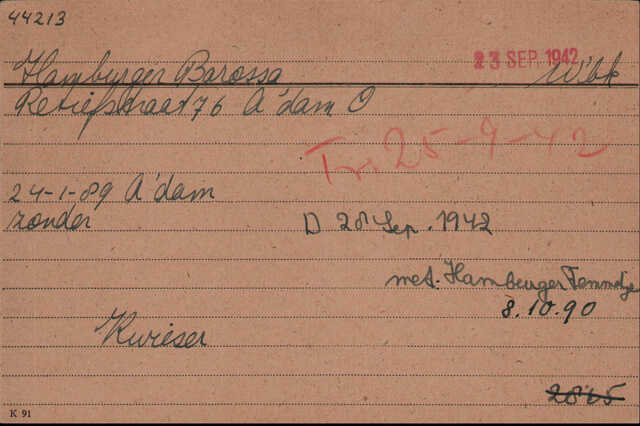 44213
23 SEP. 1942
Hamburger Barossa W'bk
Retiefstraat 76 A'dam O
Tr. 25-9-42
24-1-89 A'dam
zonder
D 28 Sep. 1942
met: Hamburger Femmetje
8.10.90
Kwieser
2865
K 91